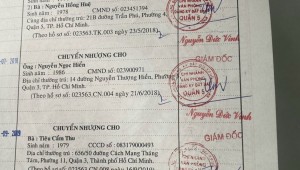 Bà : Nguyễn Hồng Huế
Sinh năm : 1978 CMND số : 023451394
Địa chỉ thường trú : 21B đường Trần Phú, Phường 4,
Quận 5, TP. Hồ Chí Minh.
(Theo hồ sơ số : 023563.TK.003 ngày 23/5/2018)
Nguyễn Đức Vinh
CHUYỂN NHƯỢNG CHO
GIÁM ĐỐC
Ông : Nguyễn Ngọc Hiển
Sinh năm : 1986 CMND số : 023900971
Địa chỉ thường trú : 14 đường Nguyễn Thượng Hiền, Phường
Quận 3, TP. Hồ Chí Minh.
(Theo hồ sơ số : 023563.CN.004 ngày 21/6/2018)
Nguyễn Đức Vinh
CHUYỂN NHƯỢNG CHO
GIÁM ĐỐC
Bà : Tiêu Cẩm Thu
Sinh năm : 1979 CCCD số : 083179000493
Địa chỉ thường trú : 656/50 đường Cách Mạng Tháng
Tám, Phường 11, Quận 3, Thành phố Hồ Chí Minh.